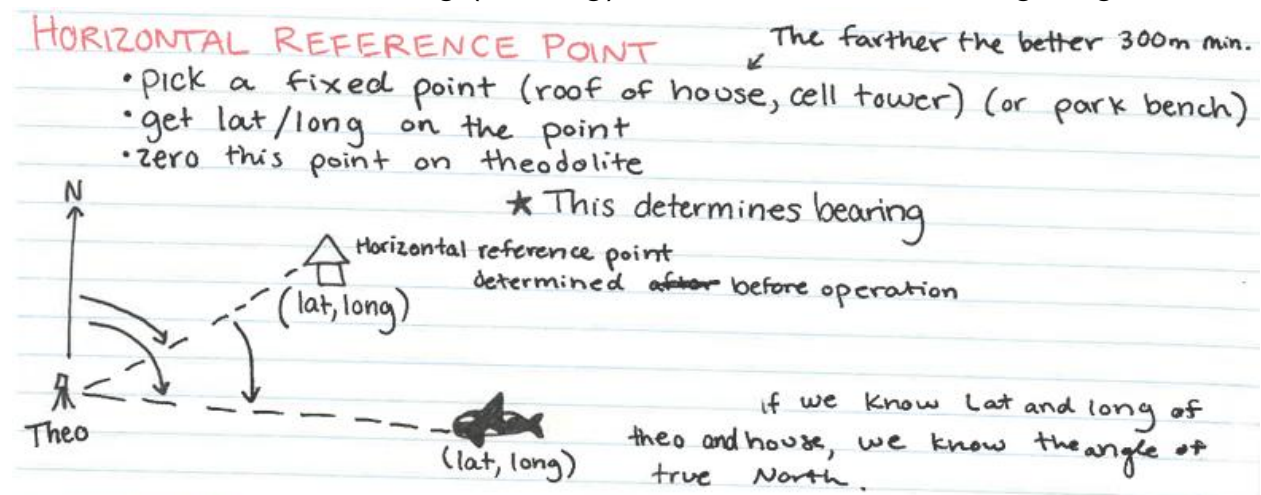 HORIZONTAL REFERENCE POINT
The farther the better 300m min.
• pick a fixed point (roof of house, cell tower) (or park bench)
• get lat/long on the point
• zero this point on theodolite
N
★ This determines bearing
Horizontal reference point
determined after before operation
(lat, long)
Theo
(lat, long)
if we know Lat and long of
theo and house, we know the angle of
true North.